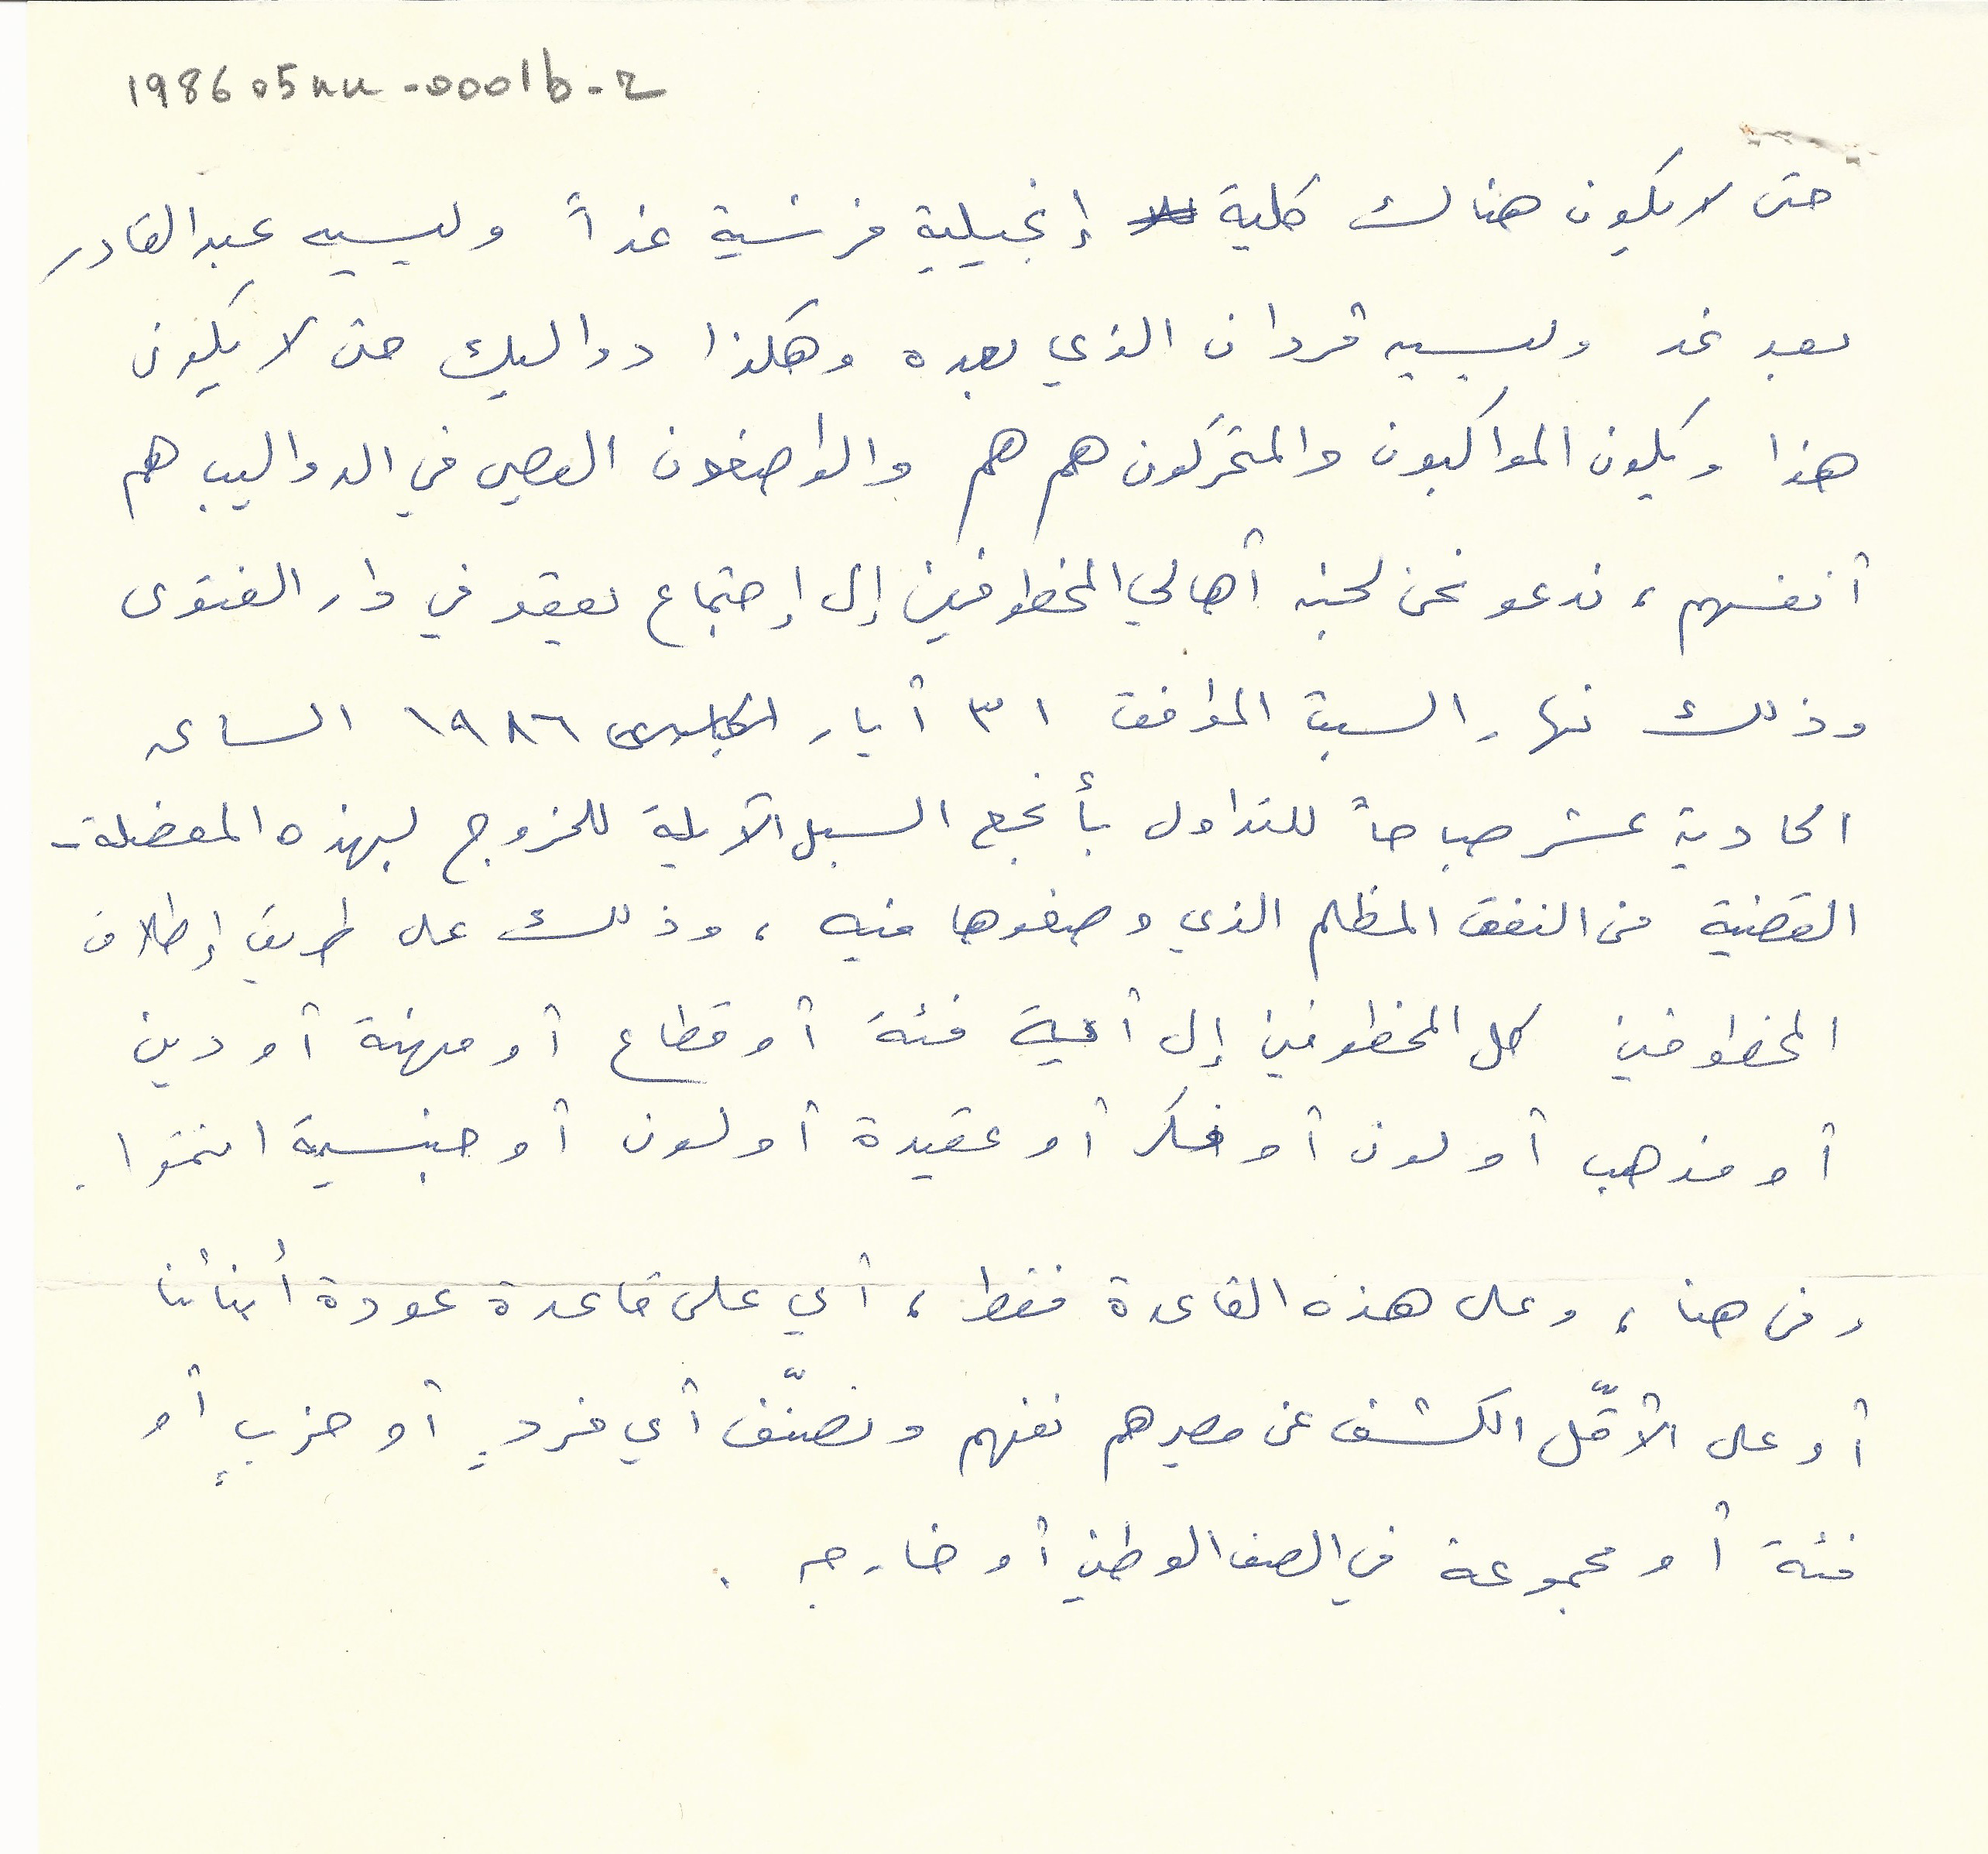 198605nn-0001b-2
حتى لا يكون هناك كلية إنجيلية فرنسية غداً وليسيه عبد القادر
بعد غد وليسيه فردان الذي بعده وهكذا دواليك حتى لا يكون
هذا ويكون المواكبون والمتحركون هم هم والواضعون العصي في الدواليب هم
أنفسهم، ندعو نحن لجنة أهالي المخطوفين إلى إجتماع يعقد في دار الفتوى
وذلك نهار السبت الموافق ٣١ أيار ١٩٨٦ الساعة
الحادية عشر صباحاً للتداول بأنجع السبل الآيلة للخروج لبهذه المعضلة -
القضية من النفق المظلم الذي وضعوها فيه، وذلك على طريق إطلاق
المخطوفين كل المخطوفين إلى أية فئة أو قطاع أو مهنة أو دين
أو مذهب أو لون أو فكر أو عقيدة أو لون أو جنسية انتموا.
ومن هنا، وعلى هذه القاعدة فقط، أي على قاعدة عودة أبنائنا
أو على الأقّل الكشف عن مصيرهم نفهم ونصنّف أي فردٍ أو حزبٍ أو
فئة أو مجموعة في الصف الوطني أو خارجه.